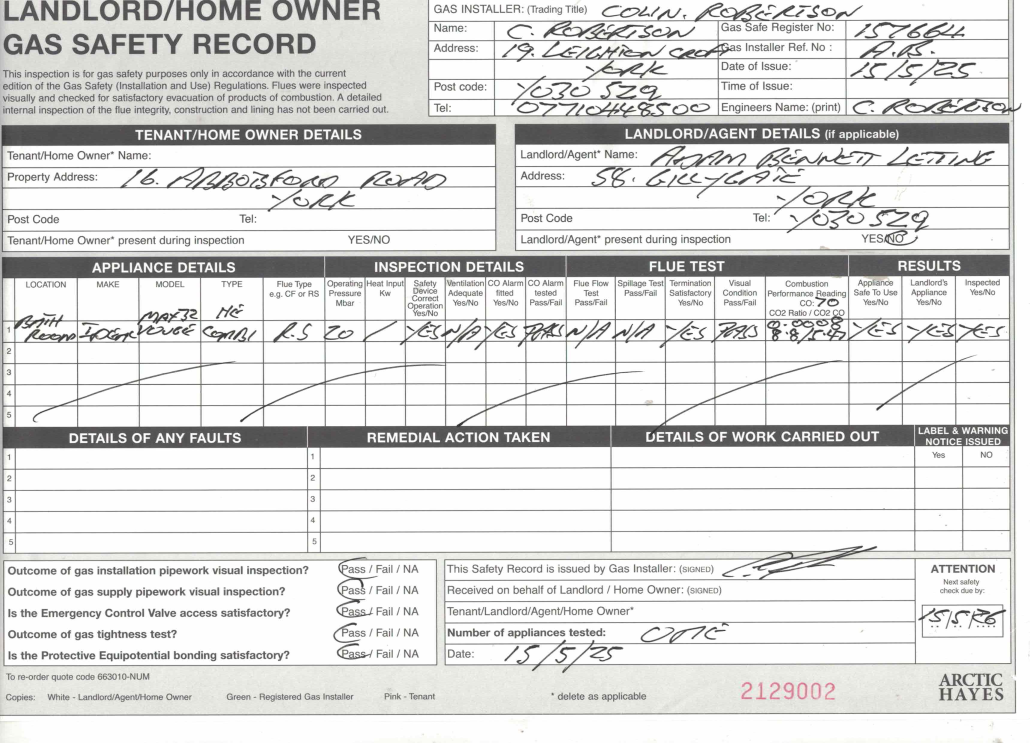 LANDLORD/HOME OWNER
GAS SAFETY RECORD
This inspection is for gas safety purposes only in accordance with the current
edition of the Gas Safety (Installation and Use) Regulations. Flues were inspected
visually and checked for satisfactory evacuation of products of combustion. A detailed
internal inspection of the flue integrity, construction and lining has not been carried out.
GAS INSTALLER: (Trading Title) COLIN. ROBERTSON
Name: C. ROBERTSON Gas Safe Register No: 157664
Address: 19. LEIGHTON CROFT Gas Installer Ref. No : A.B.
YORK Date of Issue: 15/5/25
Post code: YO30 5ZQ Time of Issue:
Tel: 07710448500 Engineers Name: (print) C. ROBERTSON
TENANT/HOME OWNER DETAILS
Tenant/Home Owner* Name:
Property Address: 16. ABBOTSFORD ROAD
YORK
Post Code Tel:
Tenant/Home Owner* present during inspection YES/NO
LANDLORD/AGENT DETAILS (if applicable)
Landlord/Agent* Name: ADAM BENNETT LETTING
Address: 58. GILLYGATE
YORK
Post Code Tel: YO30 5ZQ
Landlord/Agent* present during inspection YES/NO
APPLIANCE DETAILS INSPECTION DETAILS FLUE TEST RESULTS
LOCATION MAKE MODEL TYPE Flue Type e.g. CF or RS Operating Pressure Mbar Heat Input Kw Safety Device Correct Operation Yes/No Ventilation Adequate Yes/No CO Alarm fitted Yes/No CO Alarm tested Pass/Fail Flue Flow Test Pass/Fail Spillage Test Pass/Fail Termination Satisfactory Yes/No Visual Condition Pass/Fail Combustion Performance Reading CO: 70 CO2 Ratio / CO2 CO Appliance Safe To Use Yes/No Landlord's Appliance Yes/No Inspected Yes/No
1 BATH ROOM IDEAL MAX 32 VOUGE HE COMBI R.S 20 / YES N/A YES PASS N/A N/A YES PASS 0.0008 YES YES YES
2
3
4
5
DETAILS OF ANY FAULTS REMEDIAL ACTION TAKEN DETAILS OF WORK CARRIED OUT LABEL & WARNING NOTICE ISSUED
Yes NO
1 1
2 2
3 3
4 4
5 5
Outcome of gas installation pipework visual inspection? Pass / Fail / NA
Outcome of gas supply pipework visual inspection? Pass / Fail / NA
Is the Emergency Control Valve access satisfactory? Pass / Fail / NA
Outcome of gas tightness test? Pass / Fail / NA
Is the Protective Equipotential bonding satisfactory? Pass / Fail / NA
This Safety Record is issued by Gas Installer: (SIGNED)
Received on behalf of Landlord / Home Owner: (SIGNED)
Tenant/Landlord/Agent/Home Owner*
Number of appliances tested: ONE
Date: 15/5/25
ATTENTION
Next safety
check due by:
15/5/26
To re-order quote code 663010-NUM
Copies: White - Landlord/Agent/Home Owner Green - Registered Gas Installer Pink - Tenant * delete as applicable
2129002
ARCTIC
HAYES